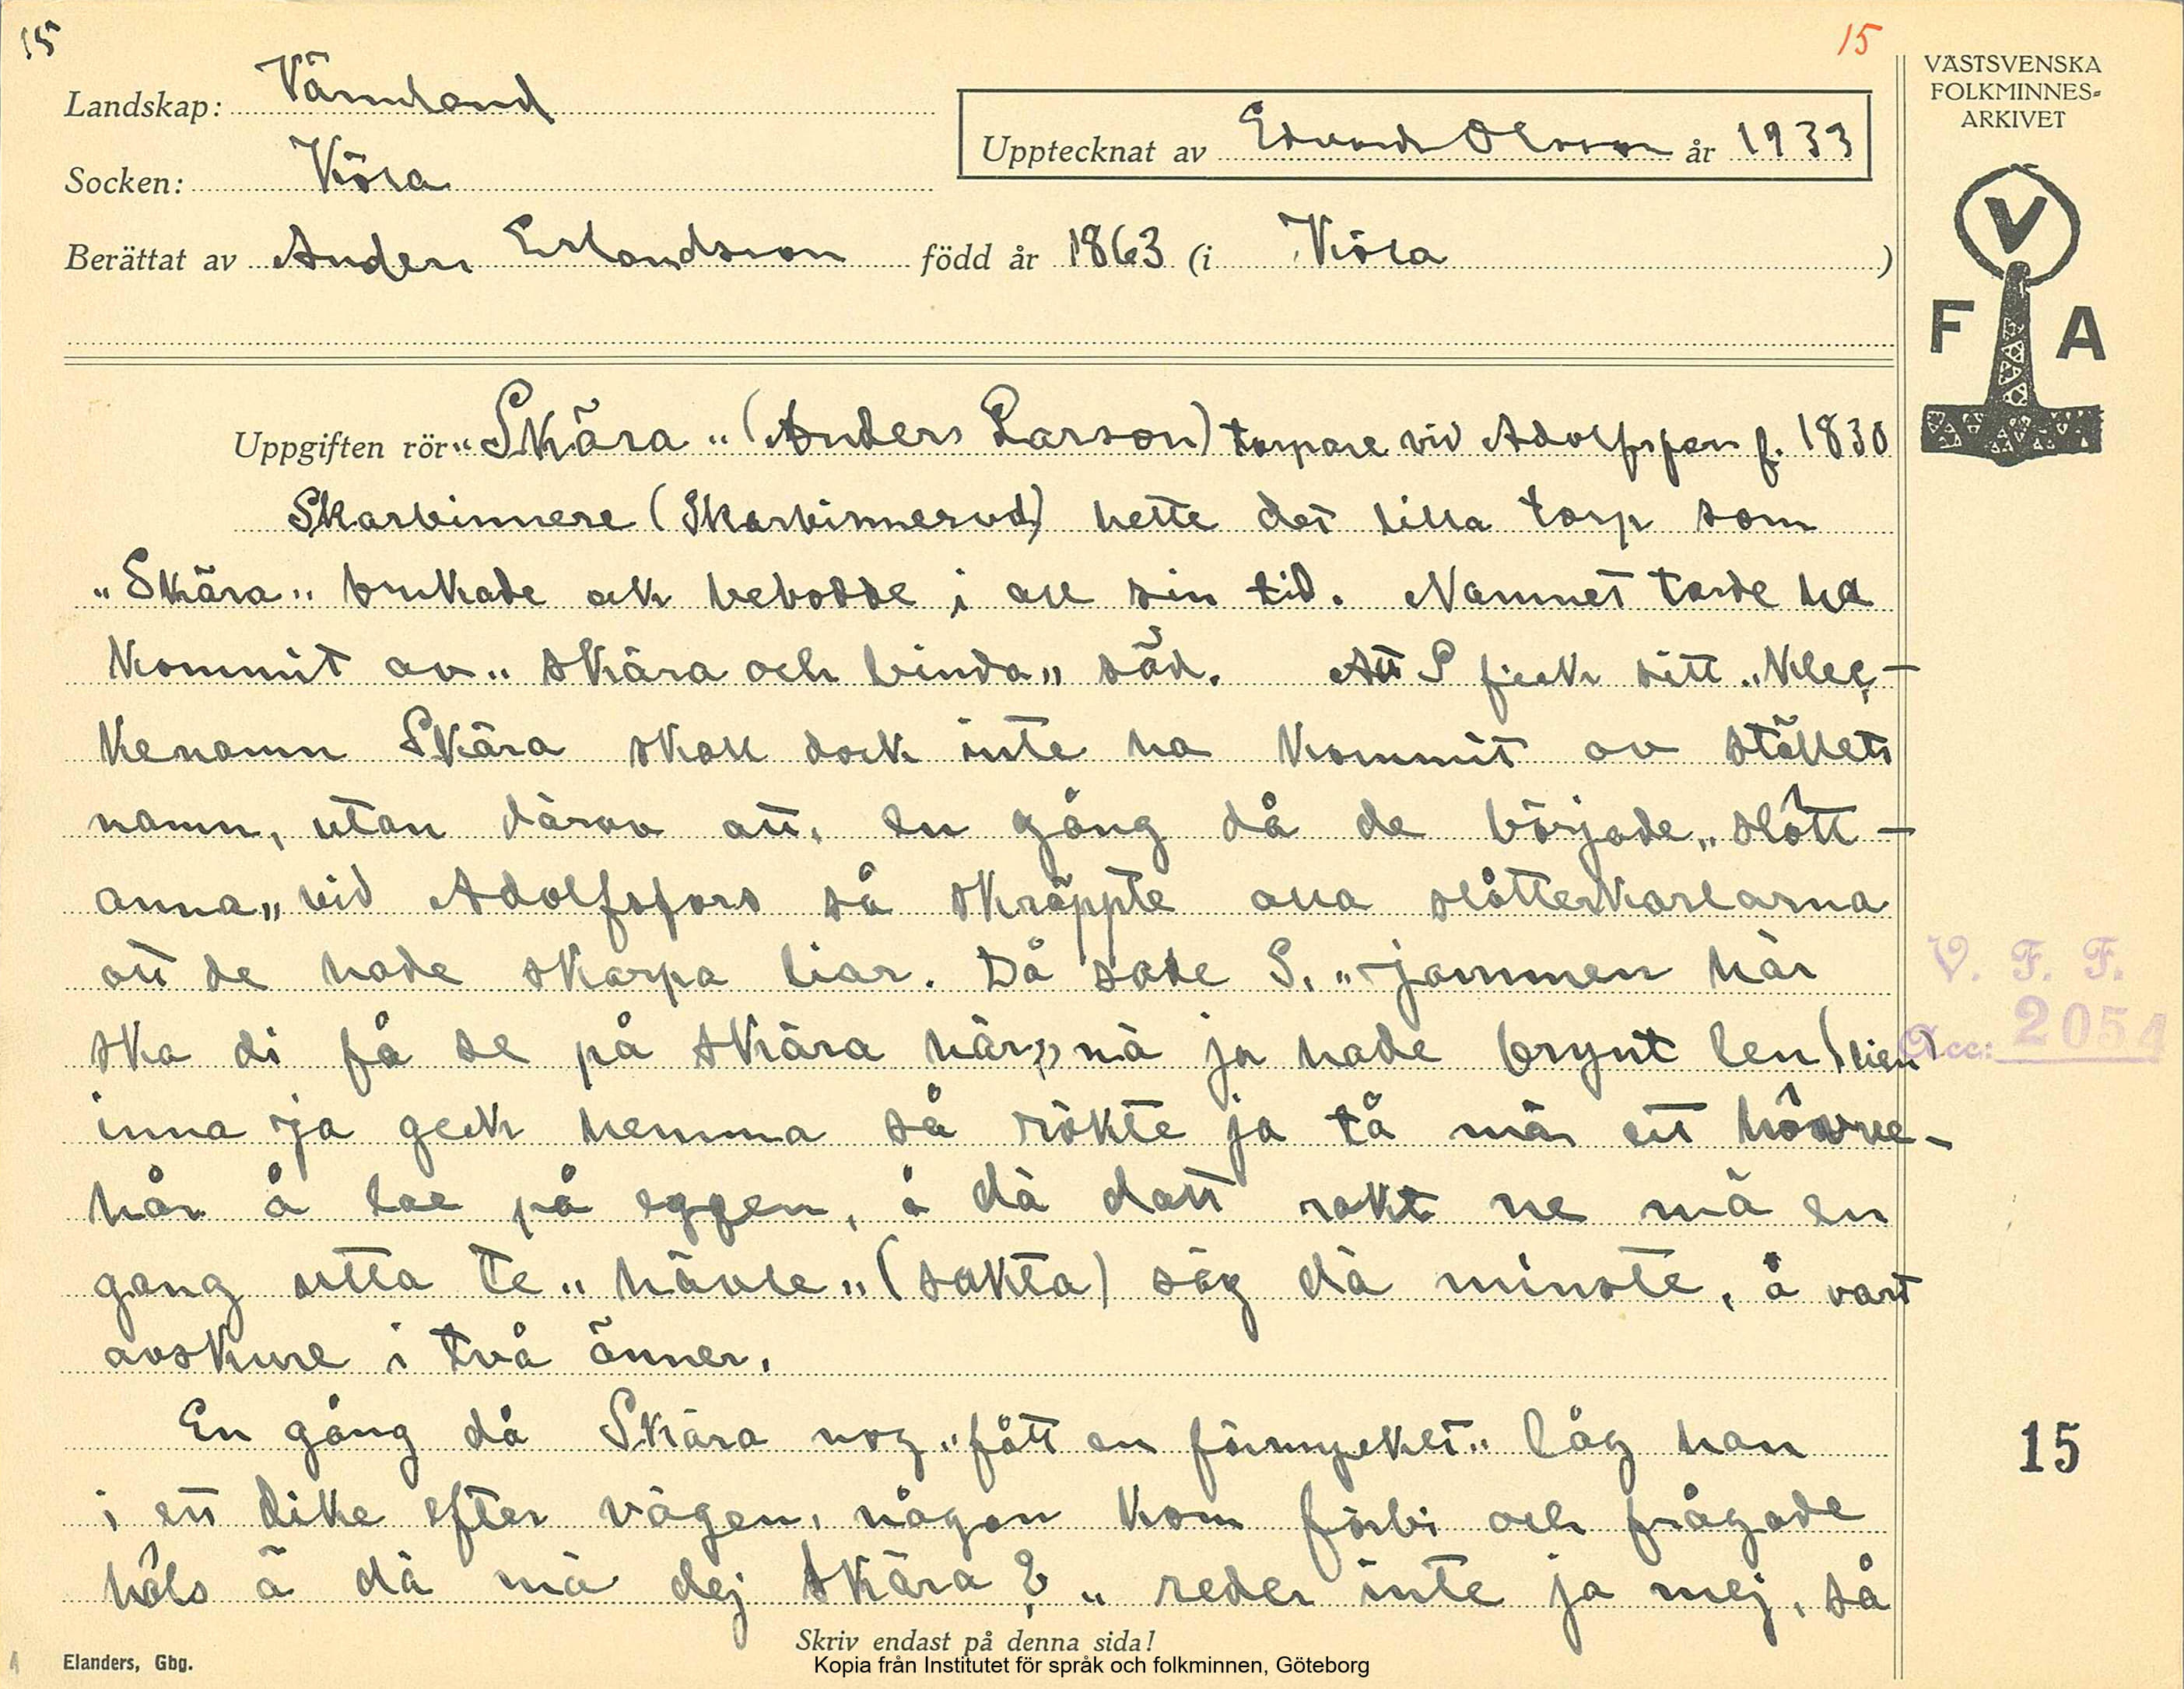 15
15
Landskap: Värmland
Socken: Köla
Upptecknat av Edvard Olsson år 1933
Berättat av Anders Erlandsson född år 1863 (i Köla)
VÄSTSVENSKA
FOLKMINNES-
ARKIVET
V
F A
Uppgiften rör „Skära„ (Anders Larson) torpare vid Adolfsfors f. 1830
Skarbinnere (Skarbinnerud) hette det lilla torp som
„Skära„ brukade och bebodde i all sin tid. Namnet torde ha
kommit av „skära och binda„ säd. Att S fick sitt „klec-
kenamn Skära skall dock inte ha kommit av ställets
namn, utan därav att, en gång då de började „slått-
anna„ vid Adolfsfors så skräppte alla slåtterkarlarna
att de hade skarpa liar. Då sade S. „jammen här
ska di få se på skära här„ nä ja hade brynt len (lien)
inna ja geck hemma så rökte ja tå mäj ett hôvve-
hår å lae på eggen, å dä datt rakt ne mä en
gang utta te „hävle„ (sakta) säg dä minste, å vart
avskure i två änner.
En gång då Skära nog „fått en förmycket„ låg han
i ett dike efter vägen, någon kom förbi och frågade
hôls ä dä mä dej Skära? „reder inte ja mej, så
V. F. F.
Acc: 2054
15
Skriv endast på denna sida!
Elanders, Gbg.
Kopia från Institutet för språk och folkminnen, Göteborg